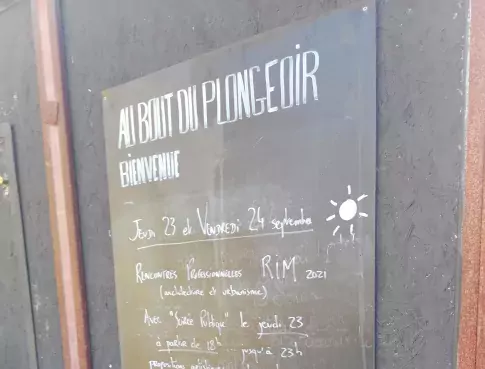 AU BOUT DU PLONGEOIR
BIENVENUE
JEUDI 23 et VENDREDI 24 septembre
RENCONTRES PROFESSIONNELLES RIM 2021
(architecture et urbanisme)
AVEC "Soirée Publique" le jeudi 23
à partir de 18h jusqu'à 23h
propositions